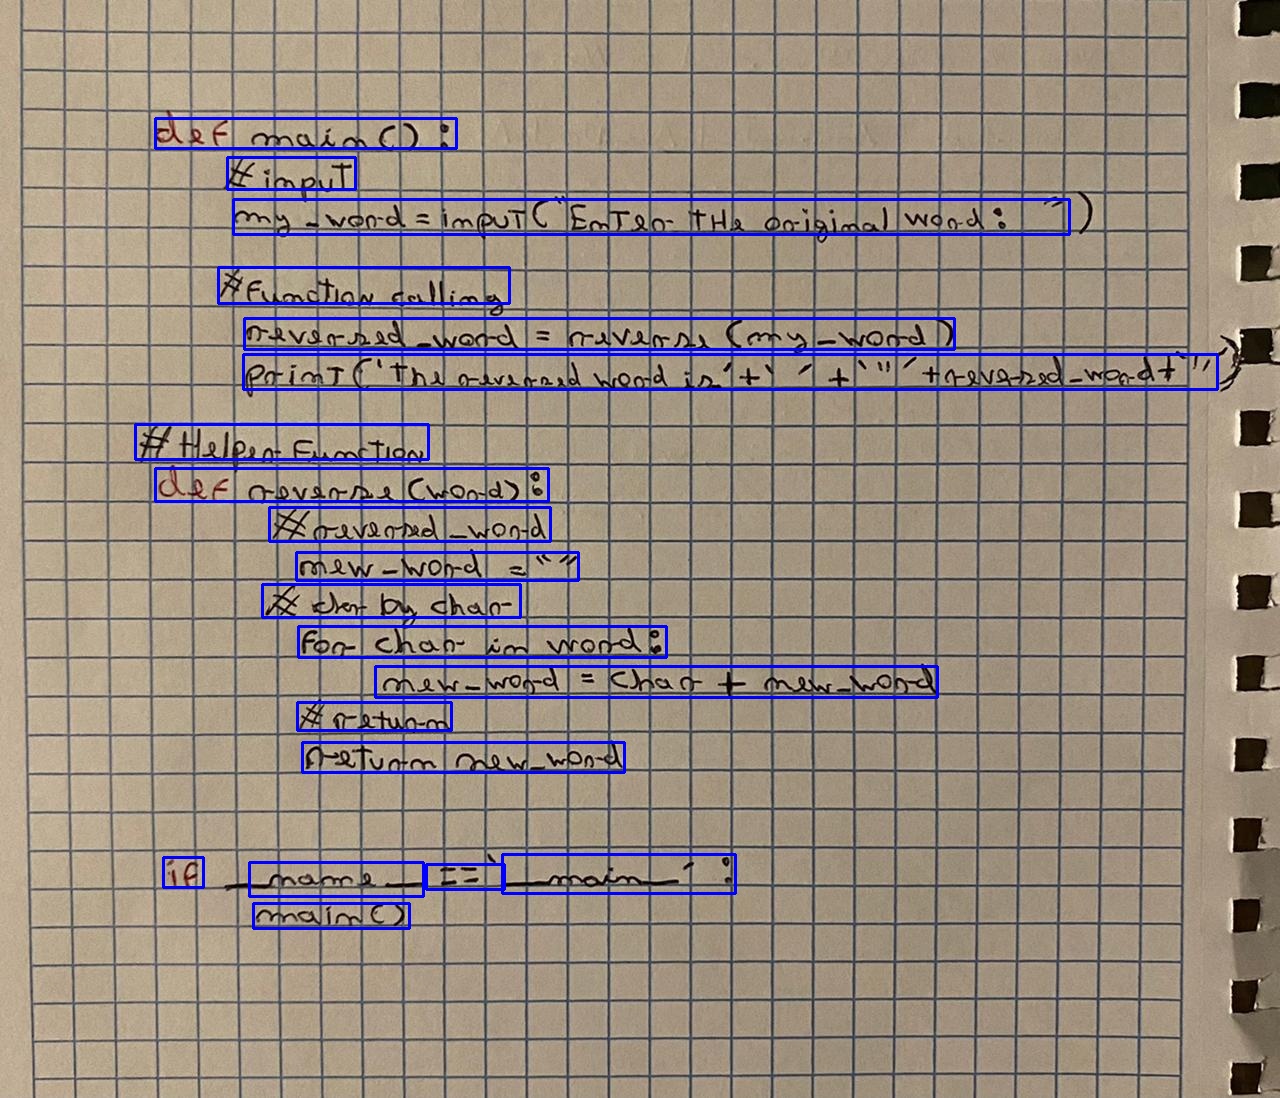 def main():
#input
my_word = input("Enter the original word: ")
#Function calling
reversed_word = reverse(my_word)
print('The reversed word is'+' '+'"'+reversed_word+'"')
# Helper Function
def reverse(word):
#reversed_word
new_word = ""
# char by char
for char in word:
new_word = char + new_word
# return
return new_word
if __name__ == '__main__':
main()